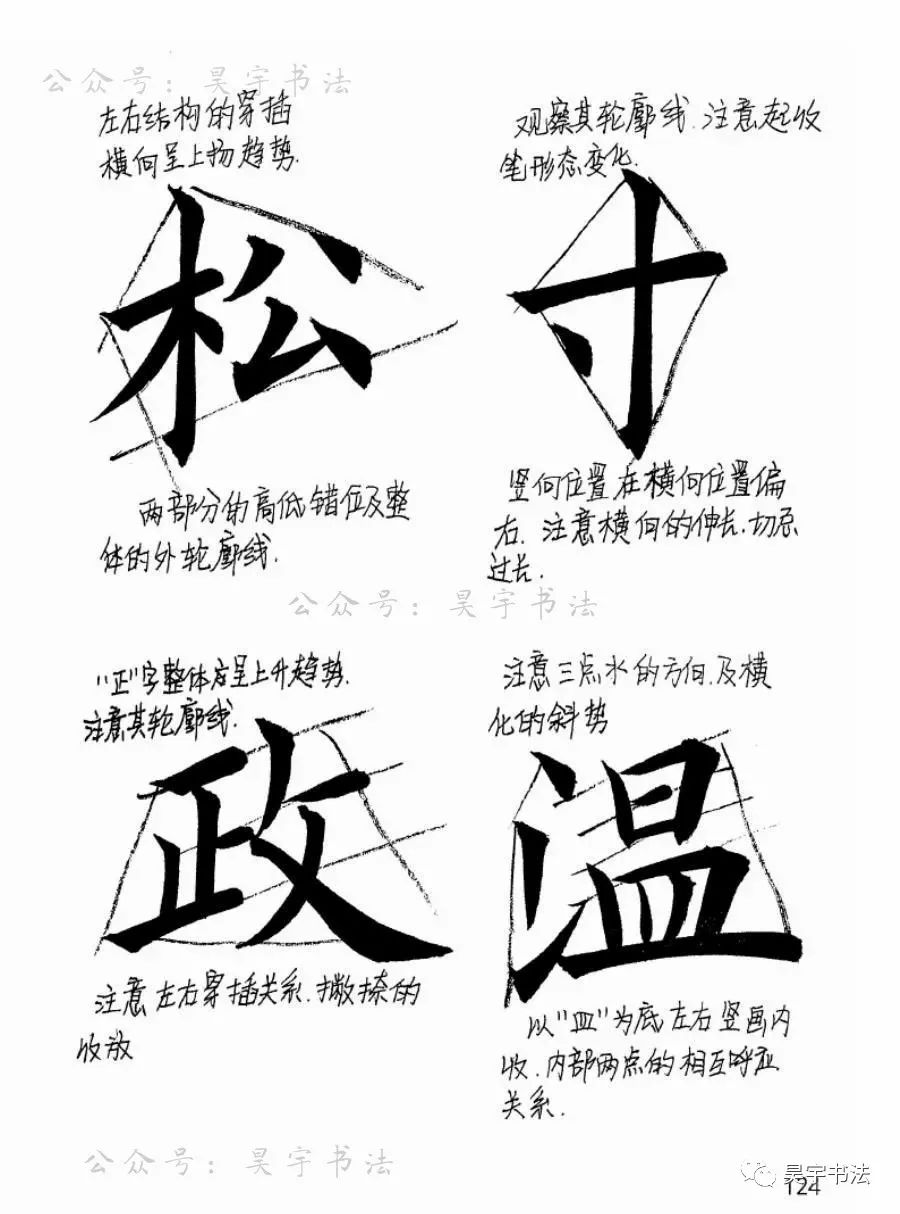 公众号：昊宇书法
左右结构的穿插
横向呈上扬趋势.
松
两部分的高低错位及整
体的外轮廓线.
观察其轮廓线.注意起收
笔形态变化.
寸
竖向位置在横向位置偏
右.注意横向的伸长.切忌
过长.
公众号：昊宇书法
"正"字整体应呈上升趋势.
注意其轮廓线.
政
注意左右穿插关系.撇捺的
收放
注意三点水的方向.及横
化的斜势
温
以"皿"为底左右竖画内
收.内部两点的相互呼应
关系.
公众号：昊宇书法
昊宇书法
124